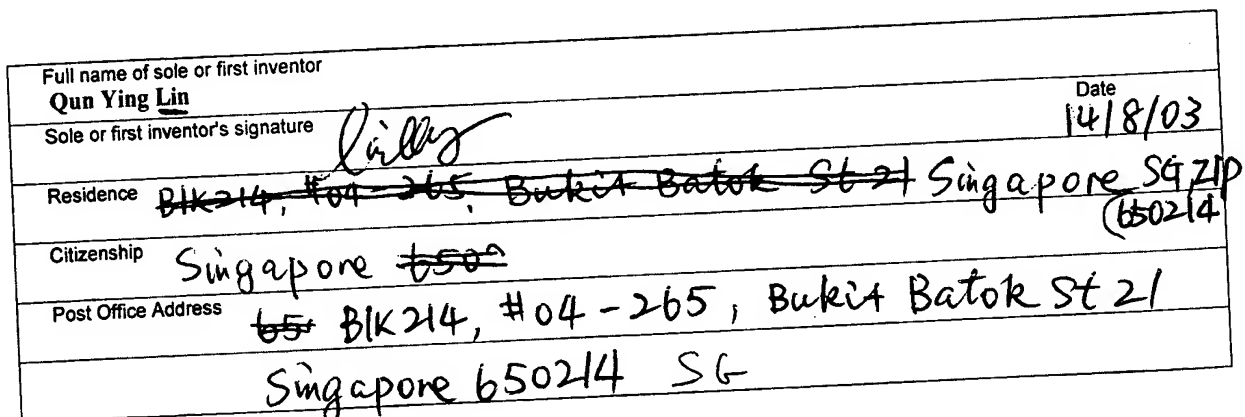 Full name of sole or first inventor
Qun Ying Lin
Date
Sole or first inventor's signature 14/8/03
Residence Blk214, #04-265, Bukit Batok St 21 Singapore SG ZIP
(650214
Citizenship Singapore 650
Post Office Address 65 Blk 214, #04-265, Bukit Batok St 21
Singapore 650214 SG